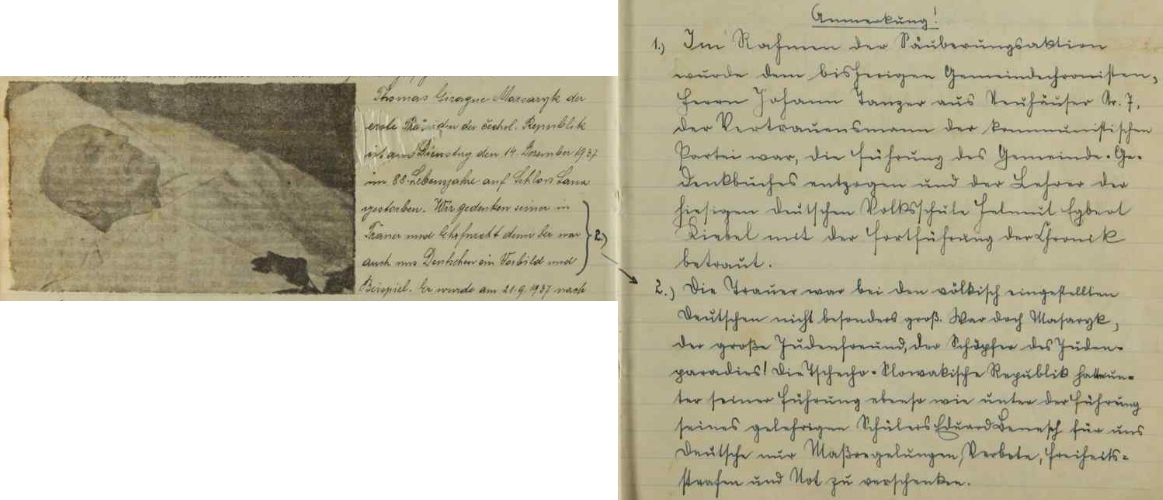 Thomas Girague Massaryk der
erste Präsident der čechosl. Republik
ist am Dienstag den 14. Dezember 1937
im 88. Lebensjahre auf Schloss Lana
gestorben. Wir gedenken seiner in
Trauer und Ehrfurcht denn der war
auch uns Deutschen ein Vorbild und
Beispiel. Er wurde am 21.9.1937 nach
2.)
Anmerkung!
1.) Im Rahmen der Säuberungsaktion
wurde dem bisherigen Gemeindechronisten,
Herrn Johann Tanzer aus Neuhäuser Nr. 7,
der Vertrauensmann der kommunistischen
Partei war, die Führung des Gemeinde-Ge-
denkbuches entzogen und der Lehrer der
hiesigen deutschen Volksschule Helmut Egbert
Kiebel mit der Fortführung der Chronik
betraut.
2.) Die Trauer war bei den völkisch eingestellten
Deutschen nicht besonders groß. War doch Masaryk,
der große Judenfreund, der Schöpfer des Juden-
paradies! Die Tschecho-Slowakische Republik hatte un-
ter seiner Führung ebenso wie unter der Führung
seines gelehrigen Schülers Eduard Benesch für uns
Deutsche nur Maßregelungen, Verbote, Freiheits-
strafen und Not zu verschenken.